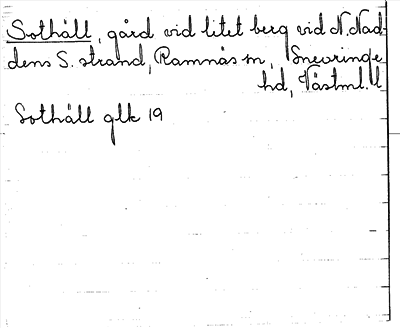 Sothäll, gård vid litet berg vid N. Nad-
dens S. strand, Ramnäs sn, Snevringe
hd, Västml. l
Sothäll glk 19